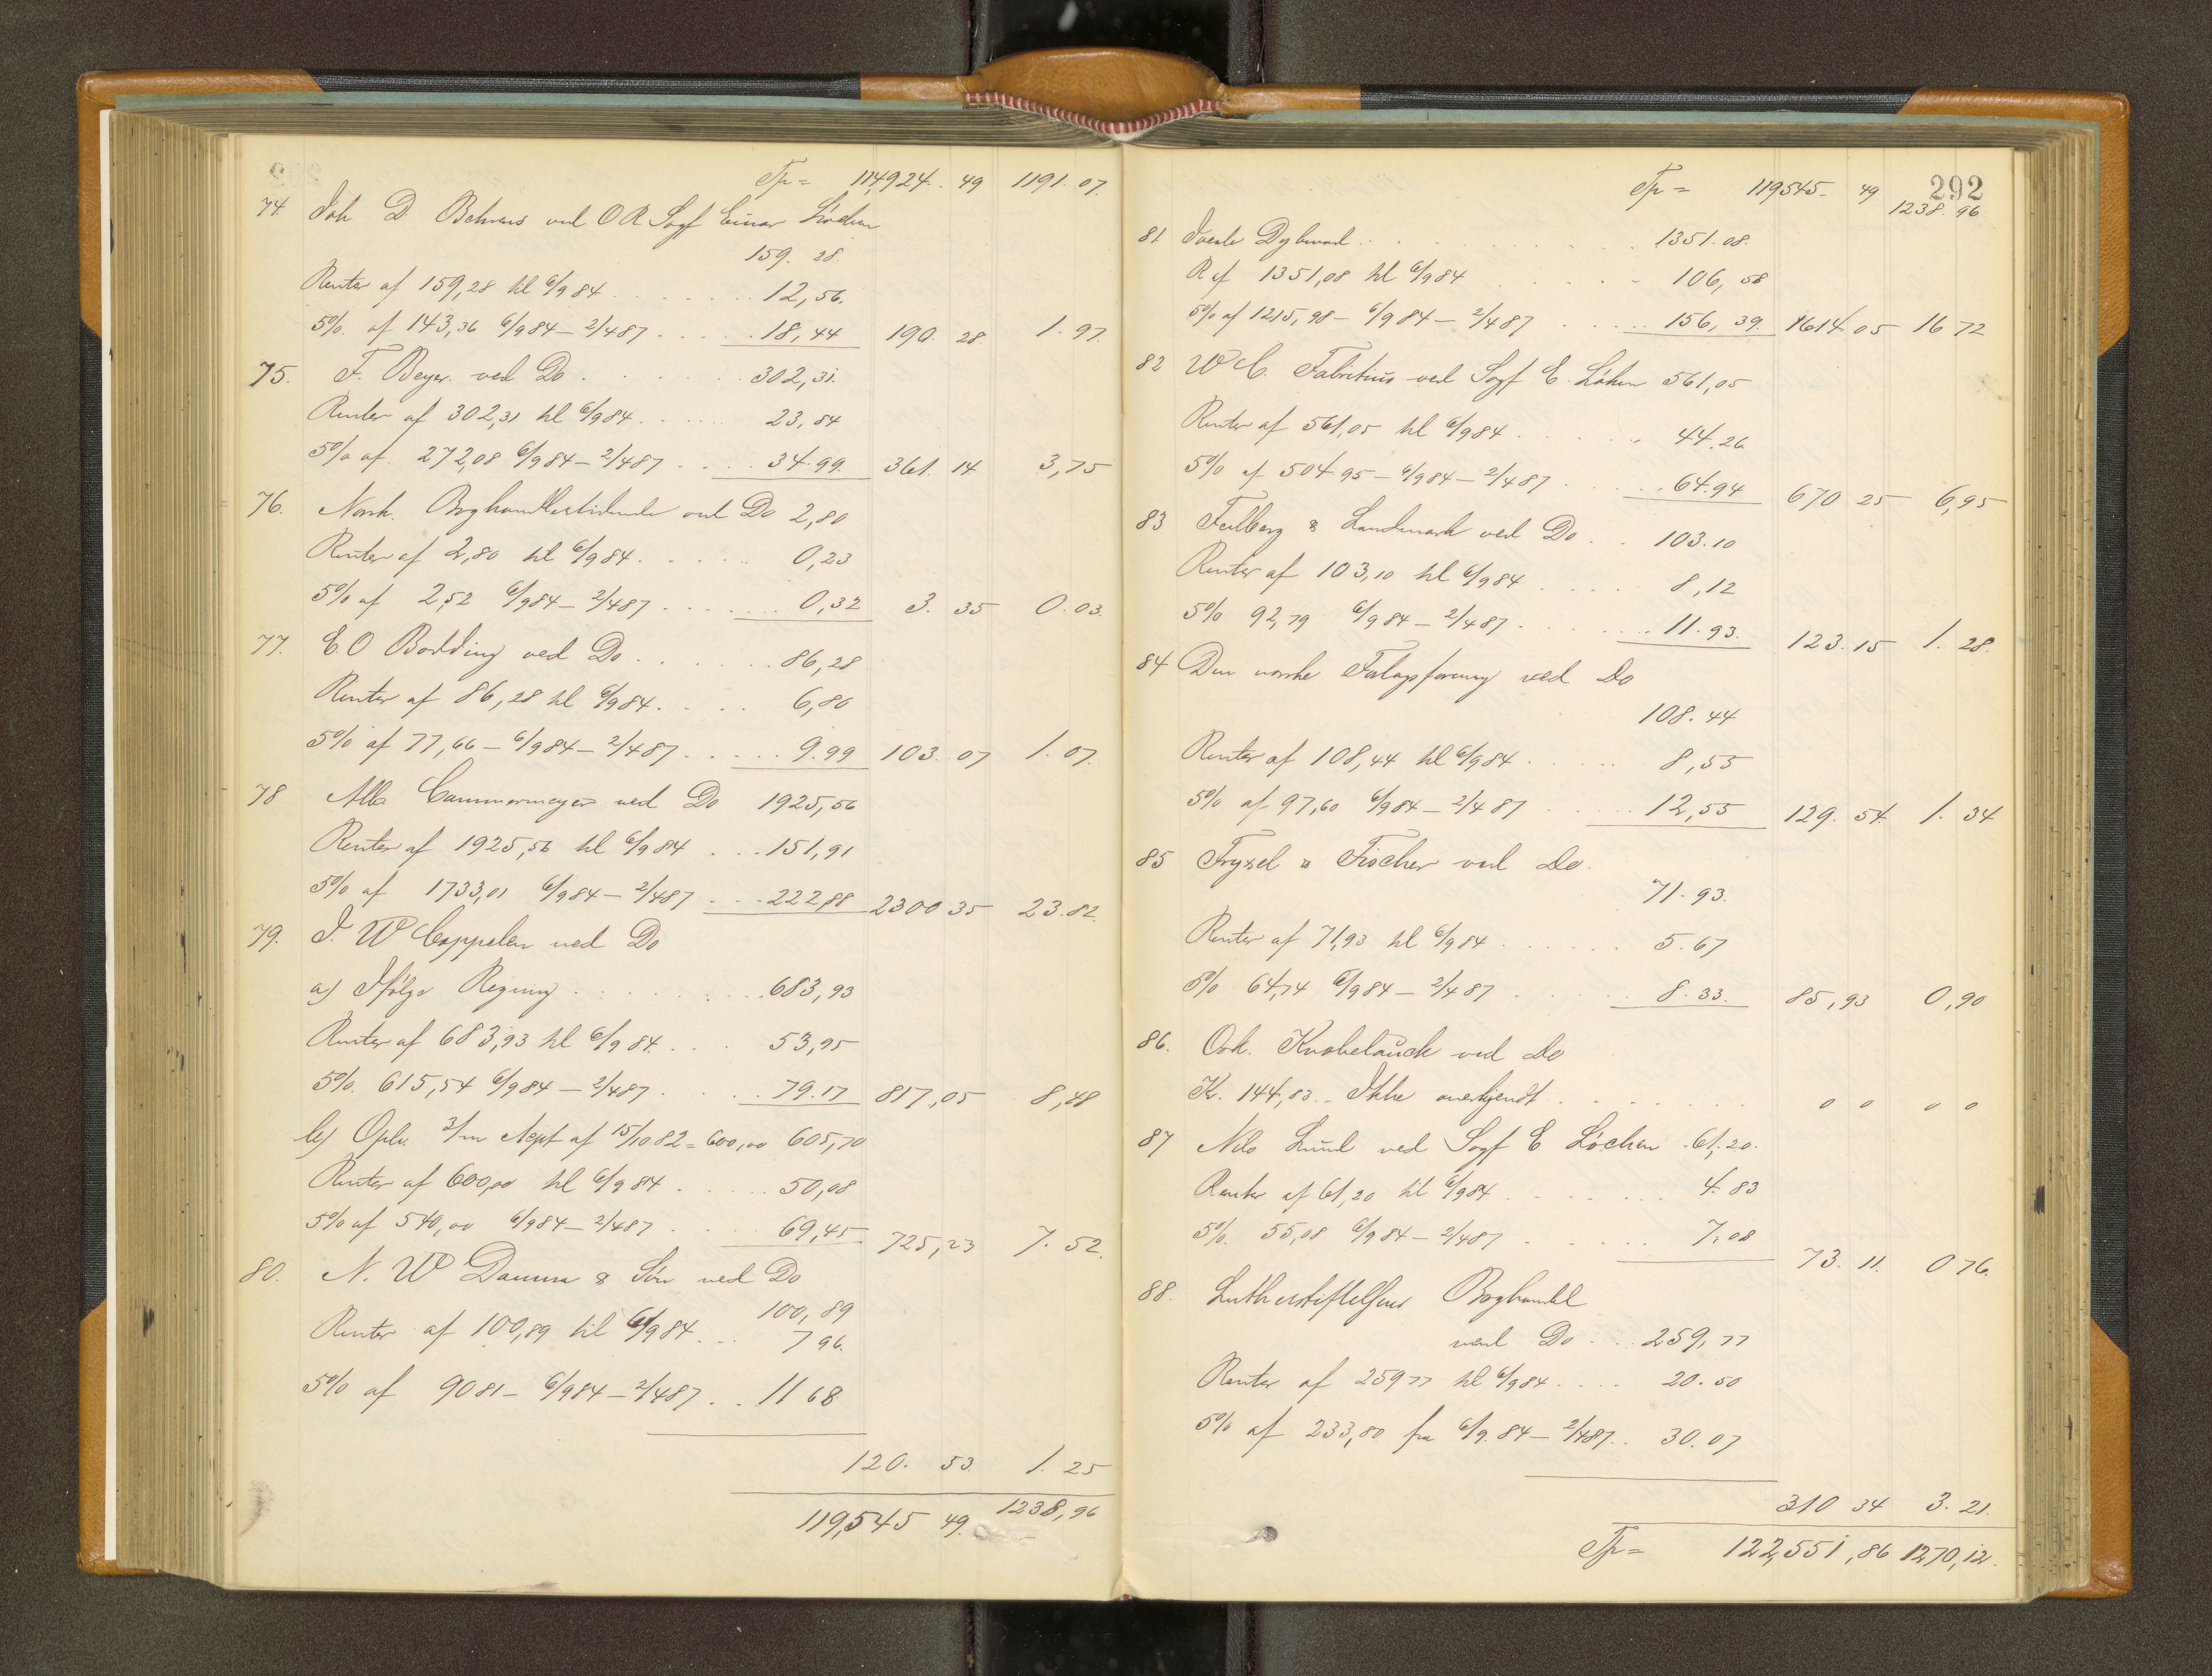 Tp = 114,924. 49 1191. 07.
74. Joh D. Behrens ved O R Sagf Einar Löchen
159. 28.
Renter af 159,28 til 6/9 84 . . . . . 12,56.
5%. af 143,36 6/9 84 – 2/4 87 . . . . 18,44 190. 28. 1. 97.
75. F. Beyer ved Do . . . . . 302,31.
Renter af 302,31 til 6/9 84 . . . . 23,84
5% af 272,08 6/9 84 – 2/4 87 . . . . 34.99. 361. 14 3,75
76. Norsk. Boghandlertidende ved Do 2,80
Renter af 2,80 til 6/9 84 . . . . . 0,23
5% af 2,52 6/9 84 – 2/4 87 . . . . . 0,32 3. 35 0.03.
77. E.O Bodding ved Do . . . . . 86,28
Renter af 86,28 til 6/9 84 . . . . 6,80
5% af 77,66 – 6/9 84 – 2/4 87 . . . . 9.99 103. 07 1. 07.
78 Alb Cammermeyer ved Do 1925,56
Renter af 1925,56 til 6/9 84 . . . 151,91
5% af 1733,01 6/9 84 – 2/4 87 . . . 222,88 2300 35 23.82.
79. J. W Cappelen ved Do
a) Ifölge Regning . . . . . 683,93
Renter af 683,93 til 6/9 84 . . . 53,95
5%. 615,54 6/9 84 – 2/4 87 . . . . 79.17 817,05 8,48
b) 3/m Acpt af 15/10 82 = 600,00 605,70
Renter af 600,00 til 6/9 84 . . . . 50,08
5% af 540,00 6/9 84 – 2/4 87 . . . 69,45 725,23 7. 52.
80. N. W Damm & Sön ved Do
100,89
Renter af 100,89 til 6/9 84 . . . 7 96.
5% af 90 81 – 6/9 84 – 2/4 87 . . . 11 68
120. 53. 1. 25
119,545 49. 1238,96
292
Tp = 119545 – 49 1238. 96
81. Jacob Dybwad . . . . . 1351.08.
R af 1351,08 til 6/9 84 . . . . 106,58
5% af 1215,98 – 6/9 84 – 2/4 87 . . . . 156,39. 1614.05 16 72
82 W C. Fabritius ved Sagf E. Löchen 561,05
Renter af 561,05 til 6/9 84 . . . . . 44.26
5% af 504 95 – 6/9 84 – 2/4 87 . . . . 64.94 670 25 6,95
83 Feilberg & Landmark ved Do . . 103.10
Renter af 103,10 til 6/9 84 . . . . 8,12
5% 92,79 6/9 84 – 2/4 87 . . . . . 11.93. 123.15 1. 28.
84 Den norske Forlagsforening ved Do
108.44
Renter af 108,44 til 6/9 84 . . . . . 8,55
5% af 97,60 6/9 84 – 2/4 87 . . . . 12,55 129. 54. 1. 34
85 Fryxel & Fischer ved Do.
71.93.
Renter af 71,93 til 6/9 84 . . . . . 5.67
5% 64,74 6/9 84 – 2/4 87 . . . . 8.33. 85,93 0,90
86. Osk. Knobelauck ved Do
Kr. 144,83 .. Ikke anerkjendt . . . . . . 0 0 0 0
87 Nils Lund ved Sagf E Löchen . 61,20.
Renter af 61,20 til 6/9 84 . . . . . 4.83
5%. 55,08 6/9 84 – 2/4 87 . . . . . 7.08
73. 11. 0 76.
88. Lutherstiftelsens Boghandel
ved Do . . . 259,77
Renter af 259 77 til 6/9 84 . . . . 20.50
5% af 233,80 fra 6/9. 84 – 2/4 87 . . 30.07
310 34 3. 21.
Tp = 122,551,86 1270,12.